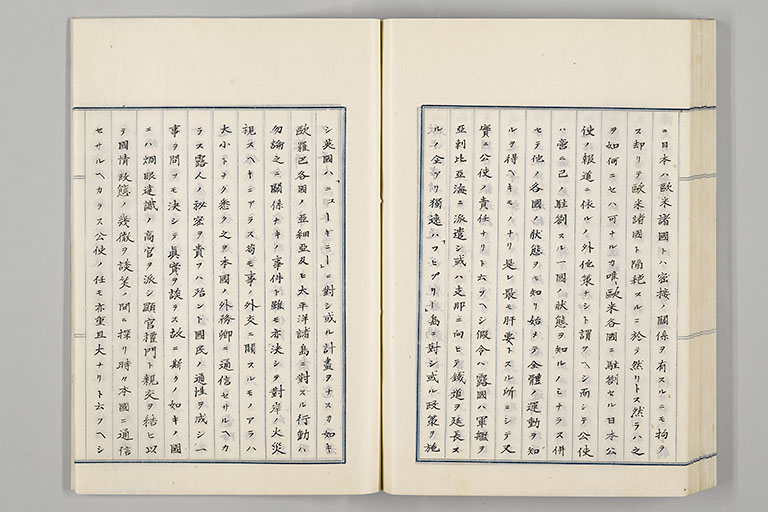 ニ日本ハ歐米諸國トハ密接ノ關係ヲ有スルニモ拘ラ
ス却リテ歐米諸國ト隔絶スルニ於テ然リトス然ラハ之
ヲ如何ニセハ可ナルカ唯歐米各國ニ駐劄セル日本公
使ノ報道ニ依ルノ外他策ナシト謂フヘシ而シテ公使
ハ啻ニ己ノ駐劄スル一國ノ狀態ヲ知ルノミナラス併
セテ他ノ各國ノ狀態ヲモ知リ始メテ全體ノ運動ヲ知
ルヲ得ヘキモノナリ是レ最モ肝要トスル所ニシテ又
實ニ公使ノ責任ナリト云フヘシ假令ハ露國ハ軍艦ヲ
亞剌比亞海ニ派遣シ或ハ支那ニ向ヒテ鐵道ヲ延長ス
ルノ企アリ獨逸ハ「ヒプリー」島ニ對シ或ル政策ヲ施
シ英國ハ「ニューギニー」ニ對シ或ル計畫ヲナスカ如キ
歐羅巴各國ノ亞細亞及ヒ太平洋諸島ニ對スル行動ハ
勿論之ニ關係ナキノ事件ト雖モ亦決シテ對岸ノ火災
視スヘキニアラス苟モ事ノ外交ニ關スルモノアラハ
大小トナク悉ク之ヲ本國ノ外務卿ニ通信セサルヘカ
ラス露人ノ祕密ヲ貴フハ殆ント國民ノ通性ヲ成シ一
事ヲ問フモ決シテ眞實ヲ談ラス故ニ斯クノ如キノ國
ニハ烱眼達識ノ高官ヲ派シ顯官權門ト親交ヲ結ヒ以
テ國情政態ノ幾微ヲ談笑ノ間ニ探リ時々本國ニ通信
セサルヘカラス公使ノ任モ亦重且大ナリト云フヘシ